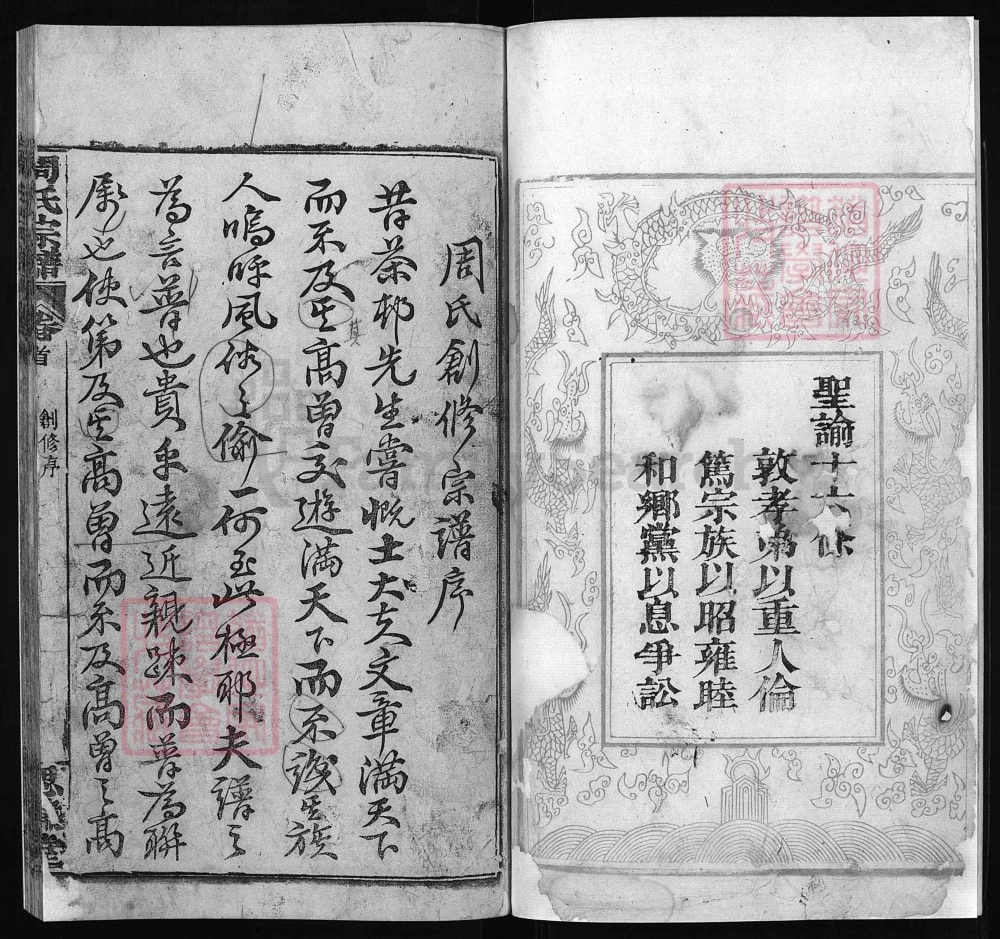 聖諭十六條
敦孝弟以重人倫
篤宗族以昭雍睦
和鄉黨以息爭訟
周氏創修宗譜序
昔茶邨先生嘗慨士大夫文章滿天下
而不及其高曾交遊滿天下而不識其族
其
人嗚呼風俗之偷一何至此極耶夫譜之
為言普也貴乎遠近親疎而普為聯
屬也使第及其高曾而不及高曾之高
周氏宗譜
卷首
創修序